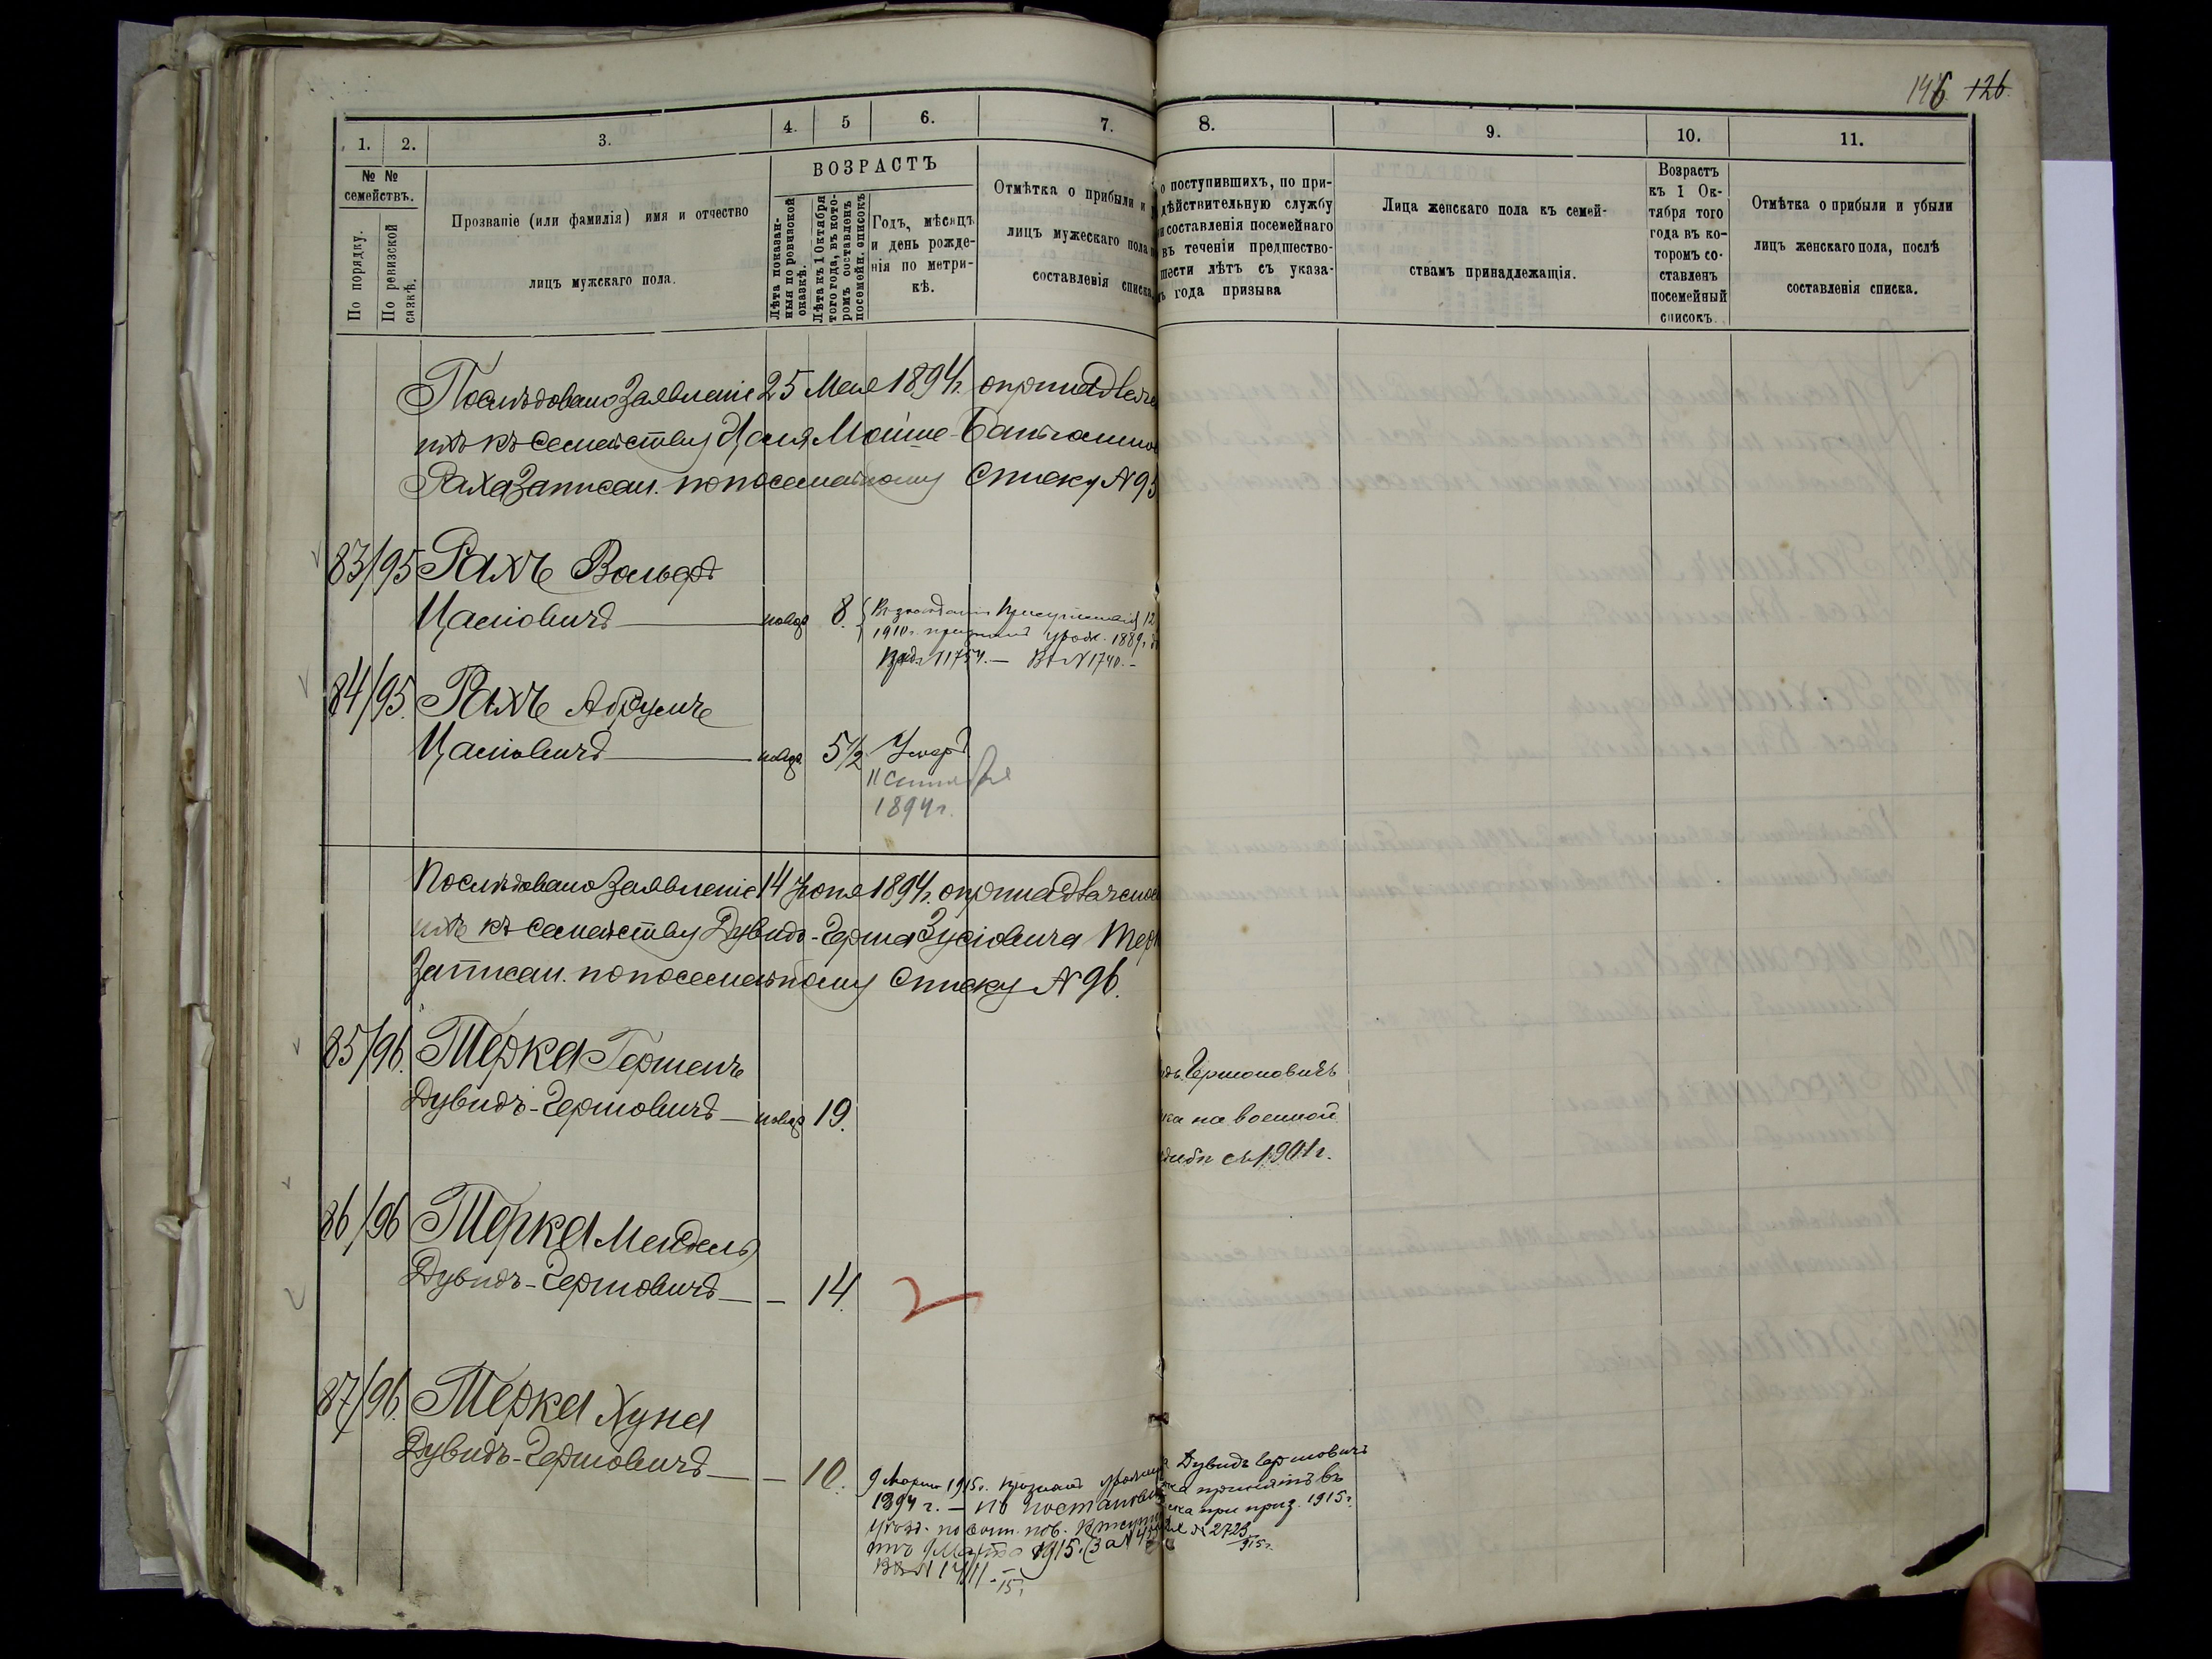 146 126.
1. 2. 3. 4. 5 6. 7. 8. 9. 10. 11.
№ № семействъ.
По порядку.
По ревизской сказкѣ.
Прозваніе (или фамилія) имя и отчество
лицъ мужскаго пола.
ВОЗРАСТЪ
Лѣта показан-
ныя по ревизской
сказкѣ.
Лѣта къ 1 Октября
того года, въ кото-
ромъ составленъ
посемейн. списокъ
Годъ, мѣсяцъ
и день рожде-
нія по метри-
кѣ.
Отмѣтка о прибыли и
лицъ мужескаго пола
составленія списка,
о поступившихъ, по при-
дѣйствительную службу
составленія посемейнаго
въ теченіи предшество-
шести лѣтъ съ указа-
года призыва
Лица женскаго пола къ семей-
ствамъ принадлежащія.
Возрастъ
къ 1 Ок-
тября того
года въ ко-
торомъ со-
ставленъ
посемейный
списокъ.
Отмѣтка о прибыли и убыли
лицъ женскаго пола, послѣ
составленія списка.
Послѣдовано Заявленіе 25 Мая 1894 г. о принадлежа
къ семейству Цаля Мойше
Раха Записан. по посемейному Списку № 95
83/95 Рахъ Вольфъ
Цаліовичъ 8.
1910 г. урож. 1889 г.
№ 1754. — № 1740. –
84/95. Рахъ Абрумъ
Цаліовичъ 5 1/2 Умеръ
11 Сентября
1894 г.
Послѣдовано Заявленіе 14 Іюня 1894 г. о принадлежнос
къ семейству Дувидъ-Герша Зусіовича
Записан. по посемейному Списку № 96.
85/96. Терка Гершенъ
Дувидъ-Гершовичъ 19.
Гершоновичъ
на военной
съ 1901 г.
86/96 Терка Мендель
Дувидъ-Гершовичъ — — 14. 2
87/96. Терка Хуна
Дувидъ-Гершовичъ — — 10.
9 Марта 1915 г. признанъ
1894 г. — по постановл
по воин. пов.
9 Марта 1915 г.
15 г.
Дувидъ Гершовичъ
принятъ въ
при приз. 1915 г.
№ 2723
915 г.